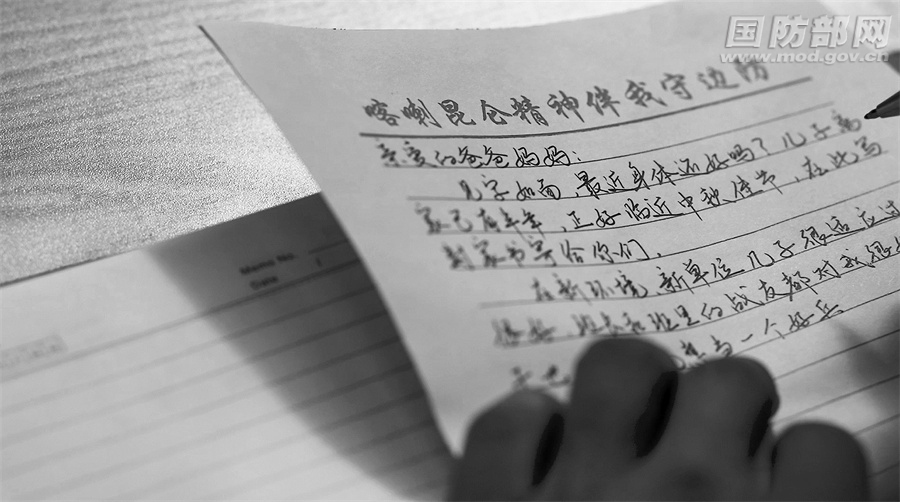 国防部网
www.mod.gov.cn
喀喇昆仑精神伴我守边防
亲爱的爸爸妈妈:
见字如面,最近身体还好吗?儿子离
家已有半年,正好临近中秋佳节,在此写
封家书寄给你们.
在新环境、新单位儿子很适应过
很好 班长和班里的战友都对我很
当一个好兵
Memo No.
Date